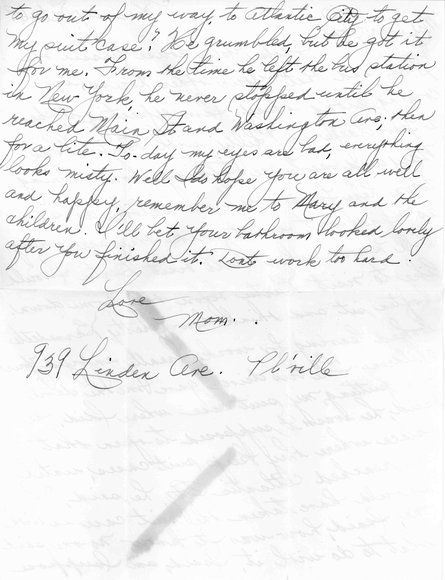 to go out of my way to Atlantic City to get
my suit case." He grumbled, but he got it
for me. From the time he left the bus station
in New York, he never stopped until he
reached Main St and Washington Ave; then
for a lite. To-day my eyes are bad, everything
looks misty. Well I do hope you are all well
and happy, remember me to Mary and the
children. I'll bet your bathroom looked lovely
after you finished it. Dont work too hard.
Love
Mom..
939 Linden Ave. Pl'ville